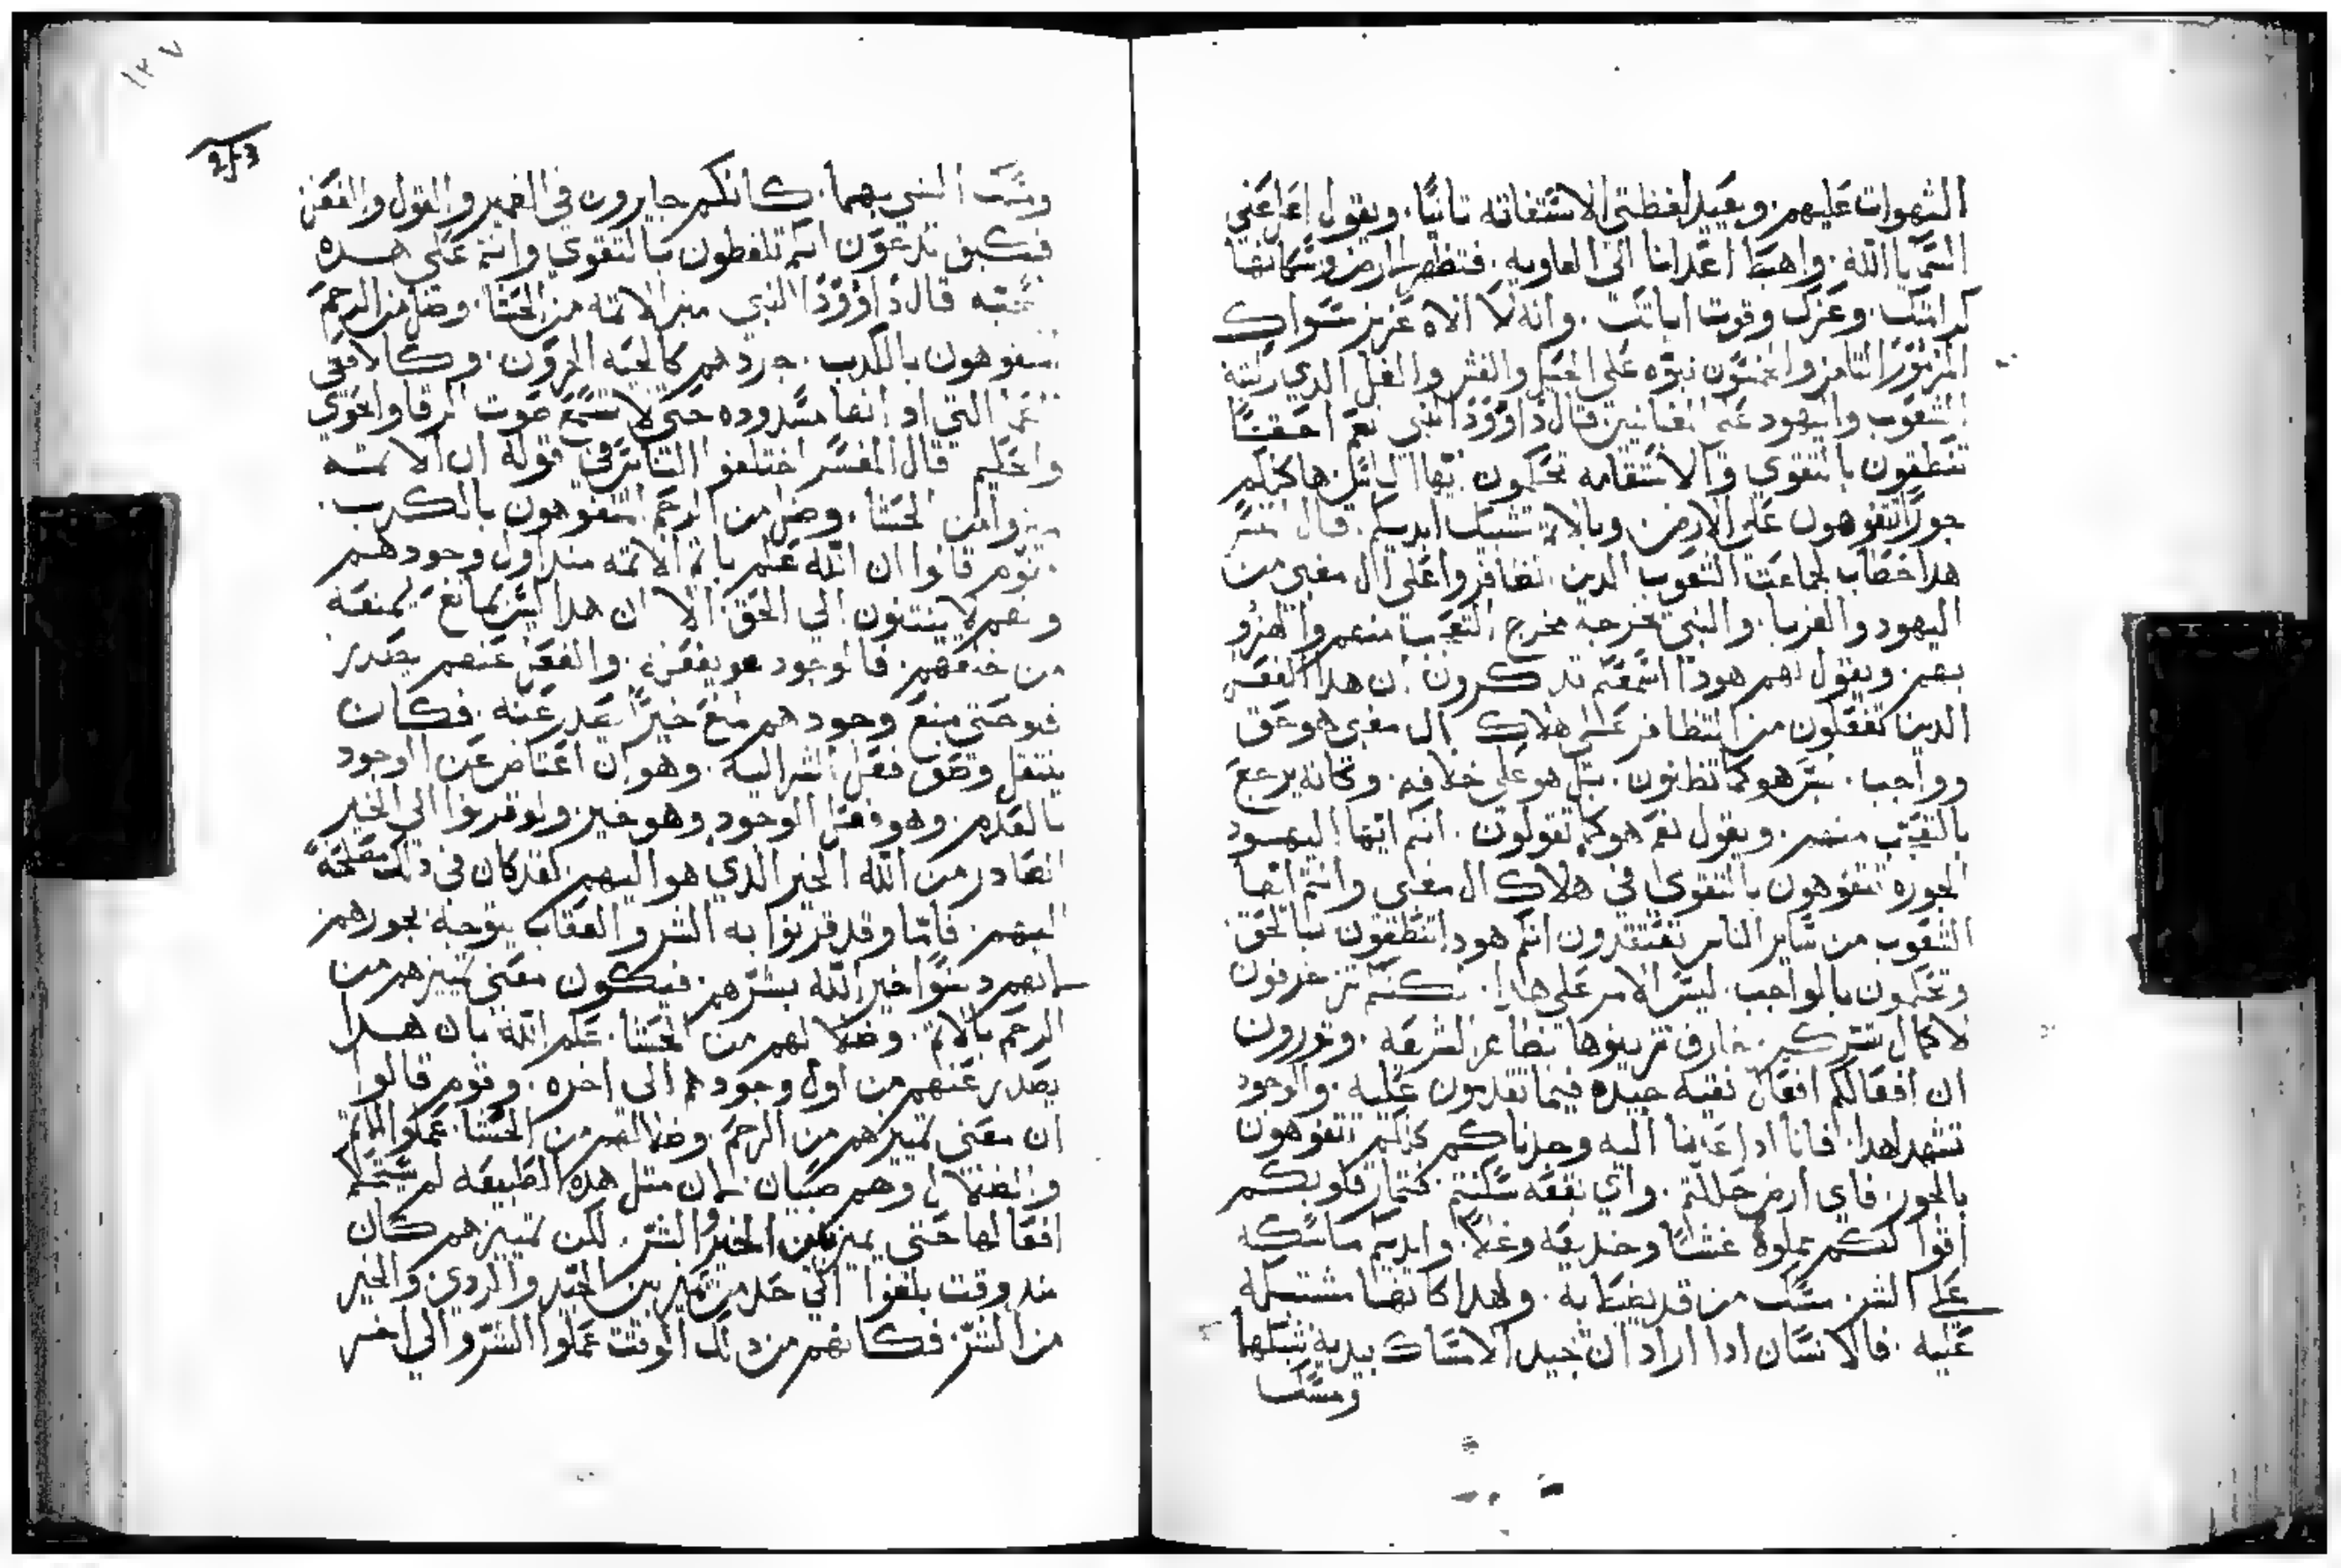 الشهوات عليهم. ويعيد لفظتي الاستغاثه ثانيًا. ويقول اعل على
السما يا الله. واهبط اعدانا الى الهاويه. فتظهر للارض وسكانها
كرامتك. وعزك وقوت اياتك. وانه لا الاه عزيز سواك
المزمور الثامن والخمسون نبوه على الحيل والغش والغل الذي رتبه
الشعوب واليهود على قال داوود النبي نعم احقًا
تنطقون بالتقوى والاستقامه تحكمون ايها الناس ها كلكم
جورًا تتفوهون على الارض. وبالاثم تشبك ايديكم. قال المفسر
هدا خطاب لجماعت الشعوب الدين تضافروا على ال مقبي من
اليهود والغربا. والنبي يخرجه مخرج التعجب منهم والهزو
بهم. ويقول لهم هودا اسمعكم تدكرون ان هدا الفعل
الدين تفعلون من التظافر على هلاك ال مقبي هو حق
وواجب. ليس هو كما تظنون. بل هو على خلافه. وكانه يرجع
بالتعجب منهم. ويقول نعم هو كما تقولون. انتم ايها اليهود
الجوره تتفوهون بالتقوى في هلاك ال مقبي وانتم ايها
الشعوب من ساير الناس تعتقدون انكم هودا تنطقون بالحق
وتحكمون بالواجب. ليس الامر على هدا. لكنكم تزخرفون
لاكمال شركم زخارف تزينوها بظاهر الشريعه. وتورون
ان افعالكم افعال نقيه جيده فيما تقدمون عليه. والوجود
تشهد لهدا. فانا ادا عاينا اليه وجدناكم كلكم تتفوهون
بالجور. فاي ارض حللتم. واي بقعه سكنتم. كثمار قلوبكم
افواهكم مملوه غشًا وخديعه وغلًا. وايديكم ماسكه
على الشر. مسك من قد يغتط به. ولهدا كانها مشتبكه
عليه. فالانسان ادا اراد ان جيد الامساك بيديه شبكها
ومسك
١٢٧
253
ومسك الشي بهما. كانكم جايرون في الضمير والقول والفعل
فكيف تدعون انكم تلفظون بالتقوى وانتم على هده
قال داوود النبي ميز الاثمه من الحشا. وضل من الرحم
المتفوهون بالكدب. حردهم كالحيه الحرون. وكالافعى
التي ادانها مسدوده حتى لا تسمع صوت الرقا والحوى
والحكيم قال المفسر اختلفوا الناس في قوله ان الاثمه
ميزوا من الحشا. وضل من الرحم المتفوهون بالكدب.
فقوم قالوا ان الله علم باثم الاثمه مند اول وجودهم
وهم لا ينثنون الى الحق الا ان هدا ليس بمانع يمنعه
من خلقهم. فالوجود هو بفعله. والفعل عنهم يصدر
فهو متى منع وجودهم منع خيرًا يصدر عنه. فكان
ينتقل وضع فعل الشر اليه. وهو ان اعتاض عن الوجود
بالعدم. وهو فعل الوجود وهو خير. ولو قربوا الى الخير
الصادر من الله الخير الذي هو اليهم لقد كان في دلك مصلحةً
اليهم. فامّا وقد قرنوا به الشر والعقاب يتوجه نحو رهم
لانهم دنسوا خير الله بشرهم. فيكون معنى تميزهم من
الرحم بالاثم. وضلالهم من الحشا. علم الله بان هدا
يصدر عنهم من اول وجودهم الى اخره. وقوم قالوا
ان معنى تميزهم من الرحم. وضلالهم من الحشا. عملوا الاثم
والضلال وهم صبيان. لان مثل هده الطبيعه لم تستكمل
افعالها حتى يميز بين الخير والشر. لكن تميزهم كان
مند وقت بلغوا الى حد من يميز بين الجيد والردي والخير
من الشر. فكانهم من دلك الوقت عملوا الشر والى اخر